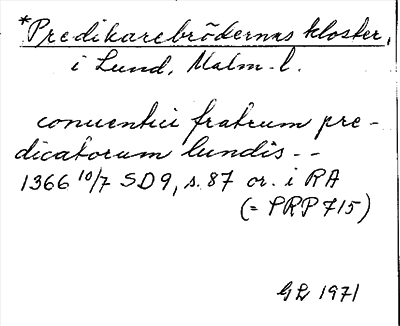 *Predikarebrödernas kloster,
i Lund, Malm. l.
conuentui fratrum pre-
dicatorum lundis--
1366 10/7 SD9, s. 87 or. i RA
(= PRP 715)
GL 1971